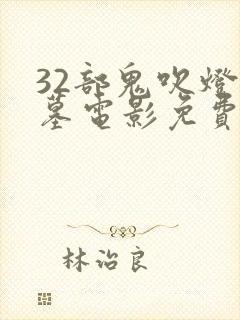 32部鬼吹燈
墓電影免費
林治良